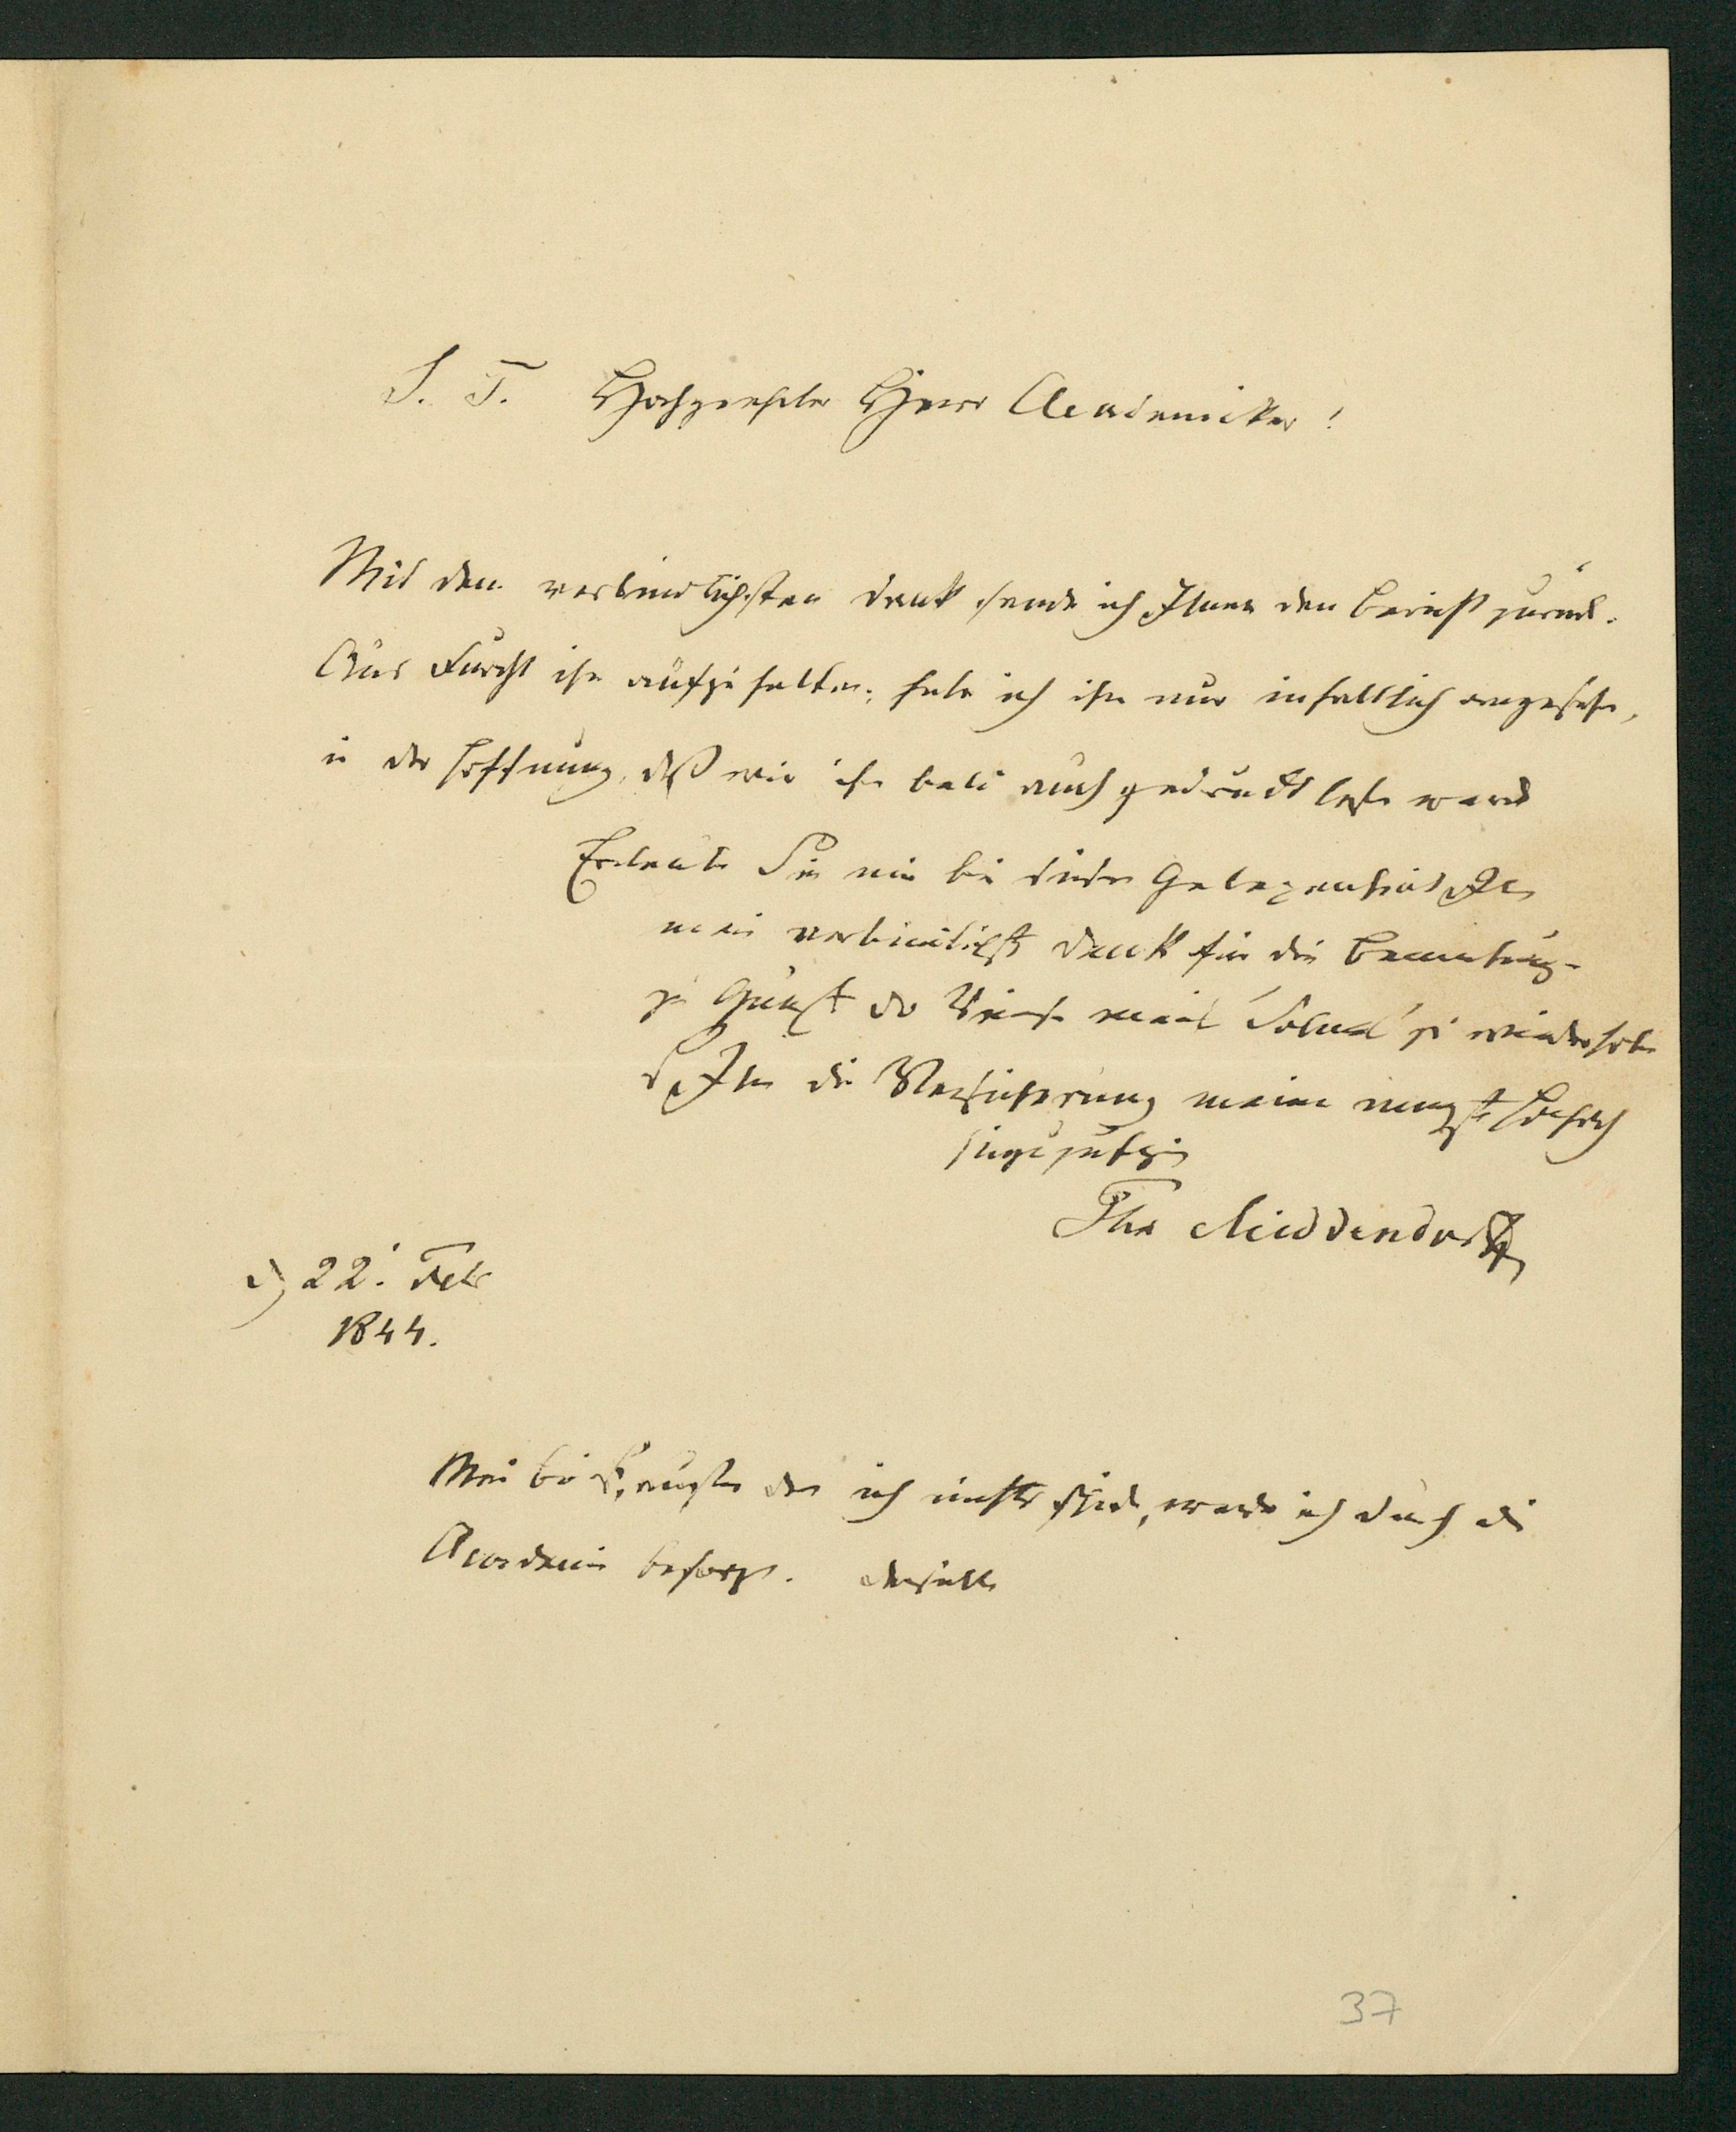 S. T. Hochgeehrter Herr Academiker!
Mit dem verbindlichsten Dank sende ich Ihnen den Bericht zurück.
Aus Furcht ihn aufzuhalten, habe ich ihn nur inhaltlich angesehen,
in der Hoffnung, daß wir ihn bald auch gedruckt lesen werden
Erlauben Sie mir bei dieser Gelegenheit Ihnen
meinen verbindlichsten Dank für die Bemerkungen
zu Gunsten der meines zu wiederholen
Ihnen die Versicherung meiner Hochach
hinzuzufügen
Ihr Middendorff
d 22. Febr
1844.
ich durch die
Academie besorgen. Derselbe
37